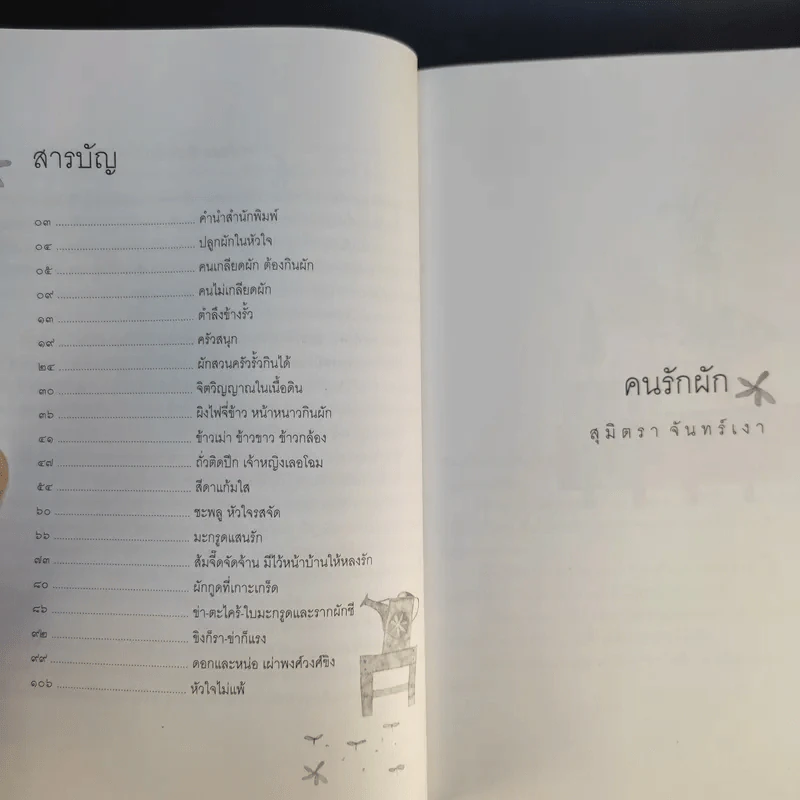 สารบัญ
๐๓ คำนำสำนักพิมพ์
๐๔ ปลูกผักในหัวใจ
๐๕ คนเกลียดผัก ต้องกินผัก
๐๙ คนไม่เกลียดผัก
๑๓ ตำลึงข้างรั้ว
๑๙ ครัวสนุก
๒๔ ผักสวนครัวรั้วกินได้
๓๐ จิตวิญญาณในเนื้อดิน
๓๖ ผิงไฟจี่ข้าว หน้าหนาวกินผัก
๔๑ ข้าวเม่า ข้าวขาว ข้าวกล้อง
๔๗ ถั่วติดปีก เจ้าหญิงเลอโฉม
๕๔ สีดาแก้มใส
๖๐ ชะพลู หัวใจรสจัด
๖๖ มะกรูดแสนรัก
๗๓ ส้มจี๊ดจัดจ้าน มีไว้หน้าบ้านให้หลงรัก
๘๐ ผักกูดที่เกาะเกร็ด
๘๖ ข่า-ตะไคร้-ใบมะกรูดและรากผักชี
๙๒ ขิงก็รา-ข่าก็แรง
๙๙ ดอกและหน่อ เผ่าพงศ์วงศ์ขิง
๑๐๖ หัวใจไม่แพ้
คนรักผัก
สุมิตรา จันทร์เงา